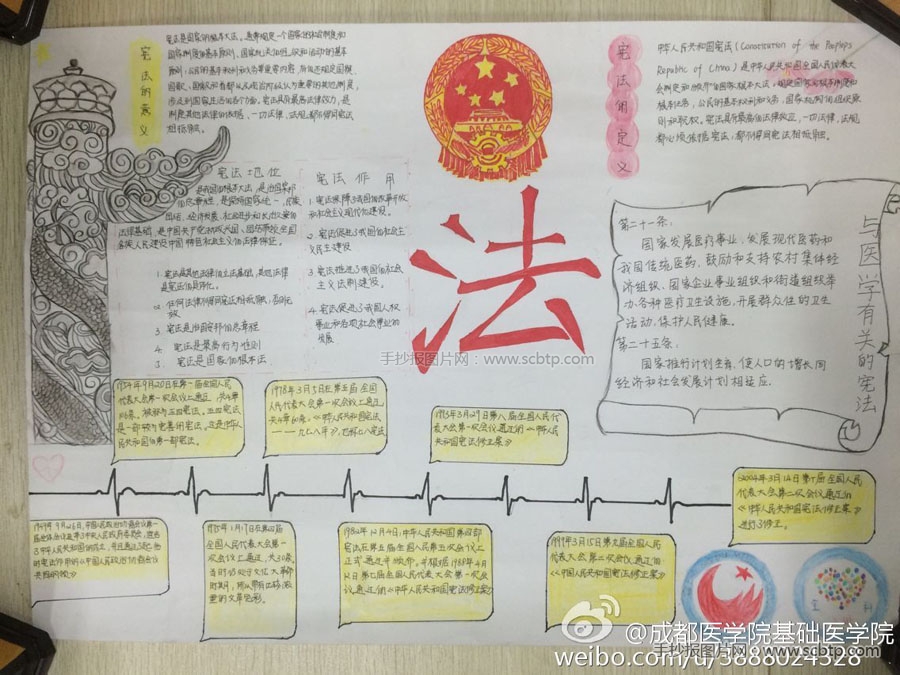 宪法的意义
宪法是国家的根本大法。通常规定一个国家的社会制度和
国家制度的基本原则、国家机关的组织和活动的基本
原则,公民的基本权利和义务等重要内容,
一切法律、法规都不得同宪法
相抵触。
宪法的定义
中华人民共和国宪法(Constitution of the People's
Republic of China)是中华人民共和国全国人民代表大
根本任务,公民的基本权利和义务,国家机构的组织原
则和职权。宪法具有最高的法律效应,一切法律、法规
都必须依据宪法,都不得同宪法相抵触。
宪法地位
是我国的根本大法,是治国安邦
的总章程,是保持国家统一、民族
团结、经济发展、社会进步和长治久安的
法律基础,是中国共产党执政兴国、团结带领全国
各族人民建设中国特色社会主义的法律保证。
1. 宪法是其他法律的立法基础,其他法律
是宪法的具体化。
2. 任何法律不得同宪法相抵触,否则无
效
3. 宪法是治国安邦的总章程
4. 宪法是最高行为准则
5. 宪法是国家根本法
宪法作用
1. 宪法保障了我国的改革开放
和社会主义现代化建设。
2. 宪法促进了我国的社会主
义民主建设
3. 宪法推进了我国的社会
主义法制建设。
4. 宪法促进了我国人权
事业和各项社会事业的
发展
法
与医学有关的宪法
第二十一条:
国家发展医疗事业,发展现代医药和
我国传统医药,鼓励和支持农村集体经
济组织、国家企业事业组织和街道组织举
办各种医疗卫生设施,开展群众性的卫生
活动,保护人民健康。
第二十五条:
国家推行计划生育,使人口的增长同
经济和社会发展计划相适应。
手抄报图片网:www.scbtp.com
1954年9月20日在第一届全国人民
代表大会第一次会议上通过,共4章
106条,被称为五四宪法。五四宪法
是一部较为完善的宪法。这是中华人
民共和国的第一部宪法。
1978年3月5日在第五届全国
人民代表大会第一次会议上通过
共4章60条。《中华人民共和国宪法
——一九七八年》,也称七八宪法
1993年3月29日第八届全国人民代
表大会第一次会议通过的《中华人
民共和国宪法修正案》
2004年3月14日第十届全国人民
代表大会第二次会议通过的
《中华人民共和国宪法修正案》
进行了修正。
1975年1月17日在第四届
全国人民代表大会第一
次会议上通过,共30条
当时仍处于文化大革命
时期,所以带有
的文革色彩。
1982年12月4日,中华人民共和国第四部
宪法在第五届全国人民第五次会议上
正式通过并颁布。并根据1988年4月
12日第七届全国人民代表大会第一次会
议通过的《中华人民共和国宪法修正案》
1999年3月15日第九届全国人民
代表大会第二次会议通过的
《中国人民共和国宪法修正案》
@成都医学院基础医学院
手抄报图片网:www.scbtp.com
weibo.com/u/3888024328